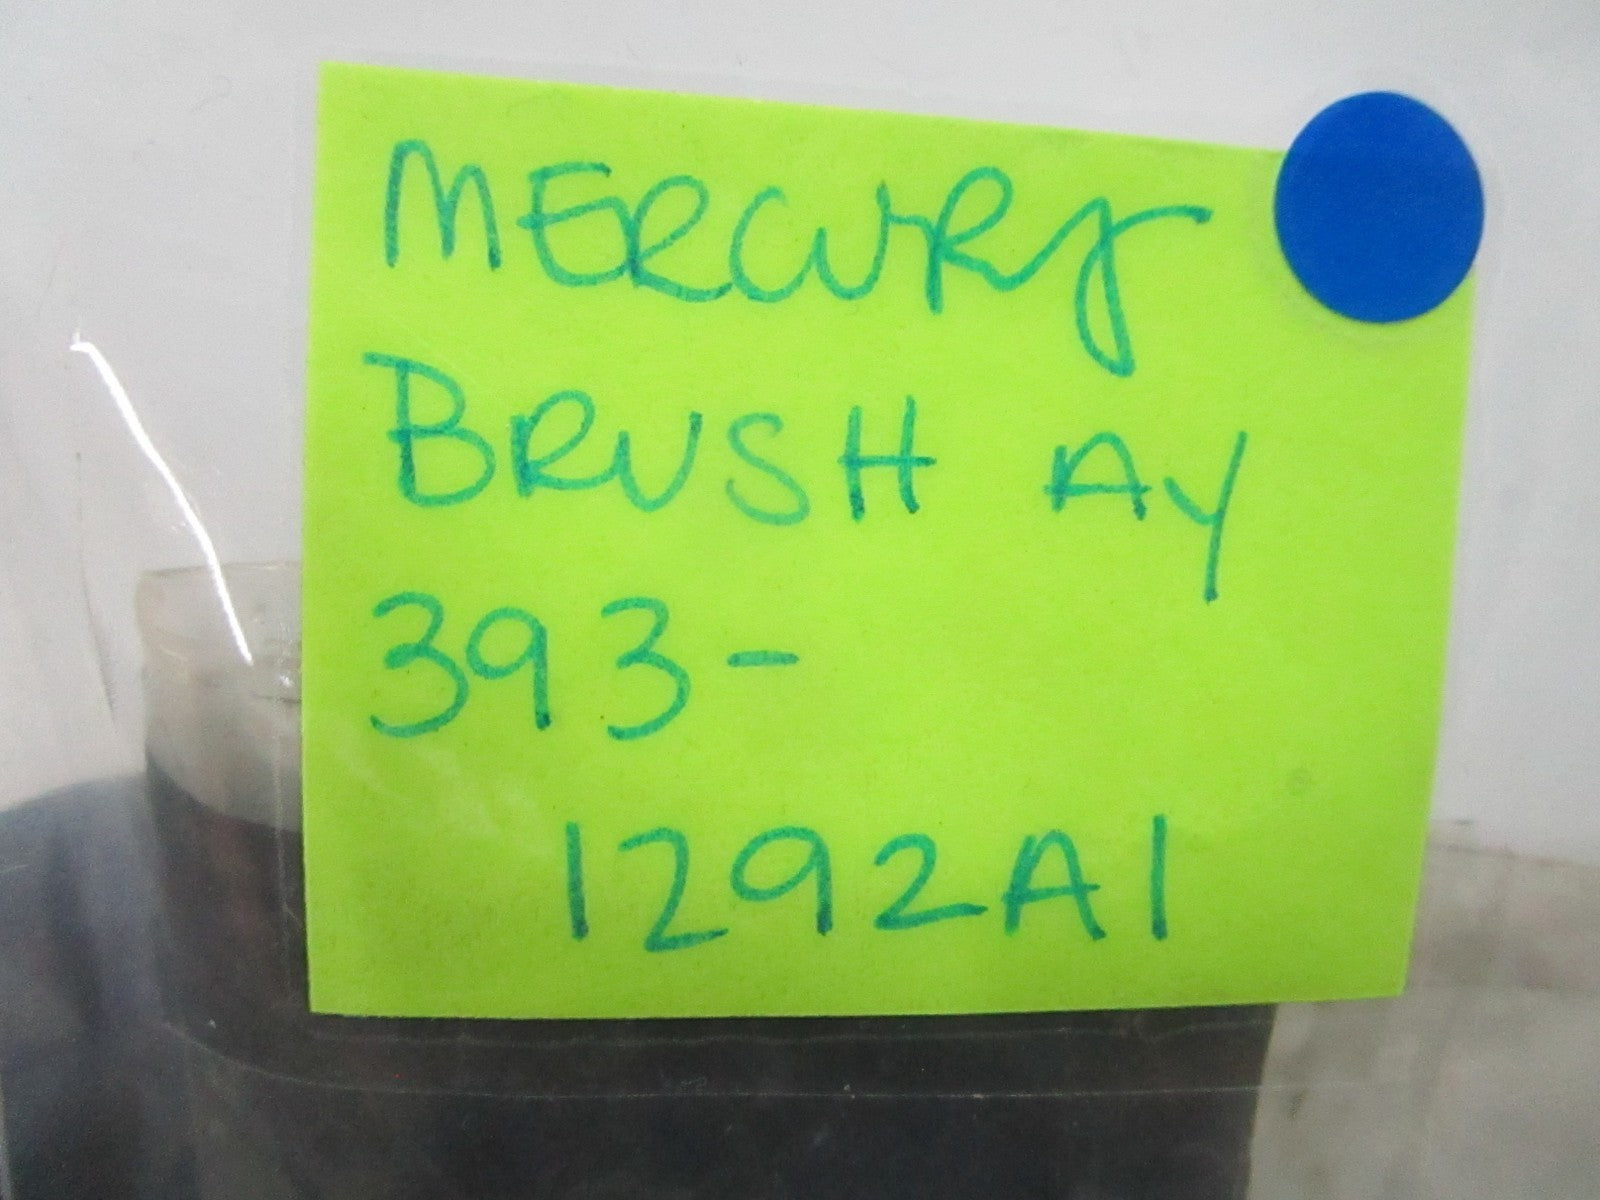 MERCURY
BRUSH AY
393-
1292A1